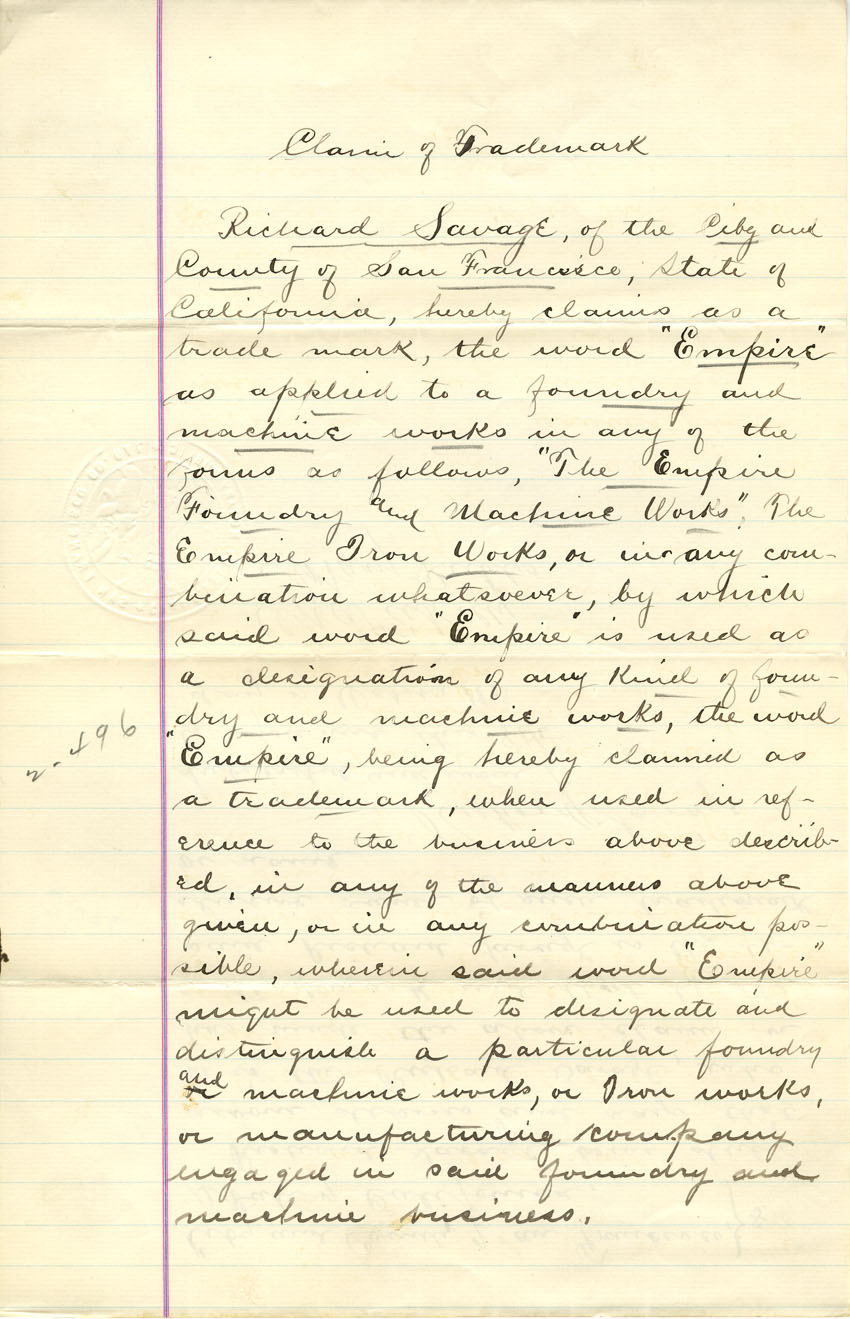 Claim of Trademark
Richard Savage, of the City and
County of San Francisco, State of
California, hereby claims as a
trade mark, the word "Empire"
as applied to a foundry and
machine works in any of the
forms as follows, "The Empire
Foundry and Machine Works", The
Empire Iron Works, or in any com-
bination whatsoever, by which
said word "Empire" is used as
a designation of any kind of foun-
dry and machine works, the word
"Empire", being hereby claimed as
a trademark, when used in ref-
erence to the business above describ-
ed, in any of the manners above
given, or in any combination pos-
sible, wherein said word "Empire"
might be used to designate and
distinguish a particular foundry
and machine works, or Iron works,
or manufacturing company
engaged in said foundry and
machine business.